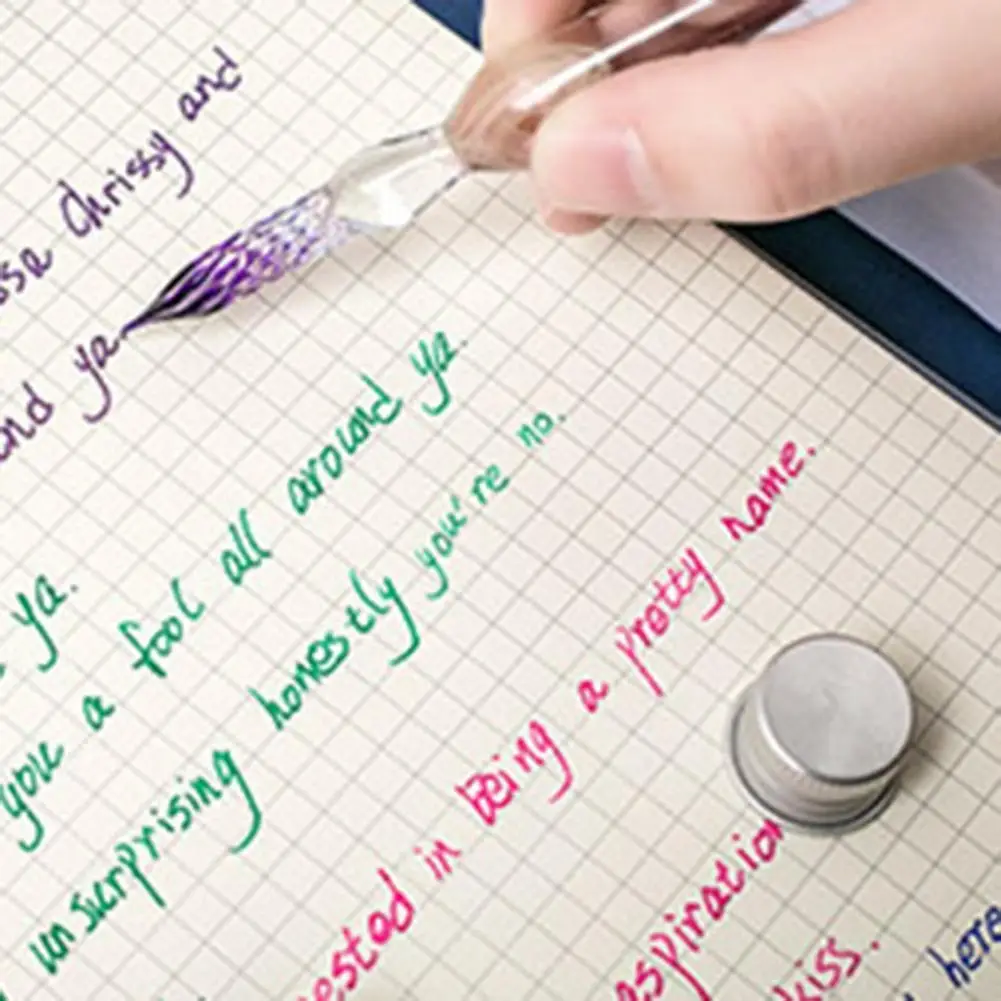 Chrissy and
and ya
ya.
you a fool all around ya.
unsurprising honestly you're no.
in being a pretty name.
kiss.
here